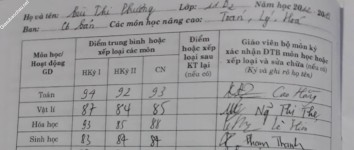 Họ và tên: Bùi Thị Phương Lớp: 11 B2 Năm học 20
Ban: Cơ bản Các môn học nâng cao: Toán, Lý, Hoá
Môn học/ Hoạt động GD
Điểm trung bình hoặc xếp loại các môn
HKỳ I HKỳ II CN
Điểm hoặc xếp loại sau KT lại (nếu có)
Giáo viên bộ môn ký xác nhận ĐTB môn học hoặc xếp loại và sửa chữa (nếu có)
(Ký và ghi rõ họ tên)
Toán 94 92 93 Cao Hùng
Vật lí 87 84 85
Hóa học 93 85 88
Sinh học 83 84 84 Phạm Thanh